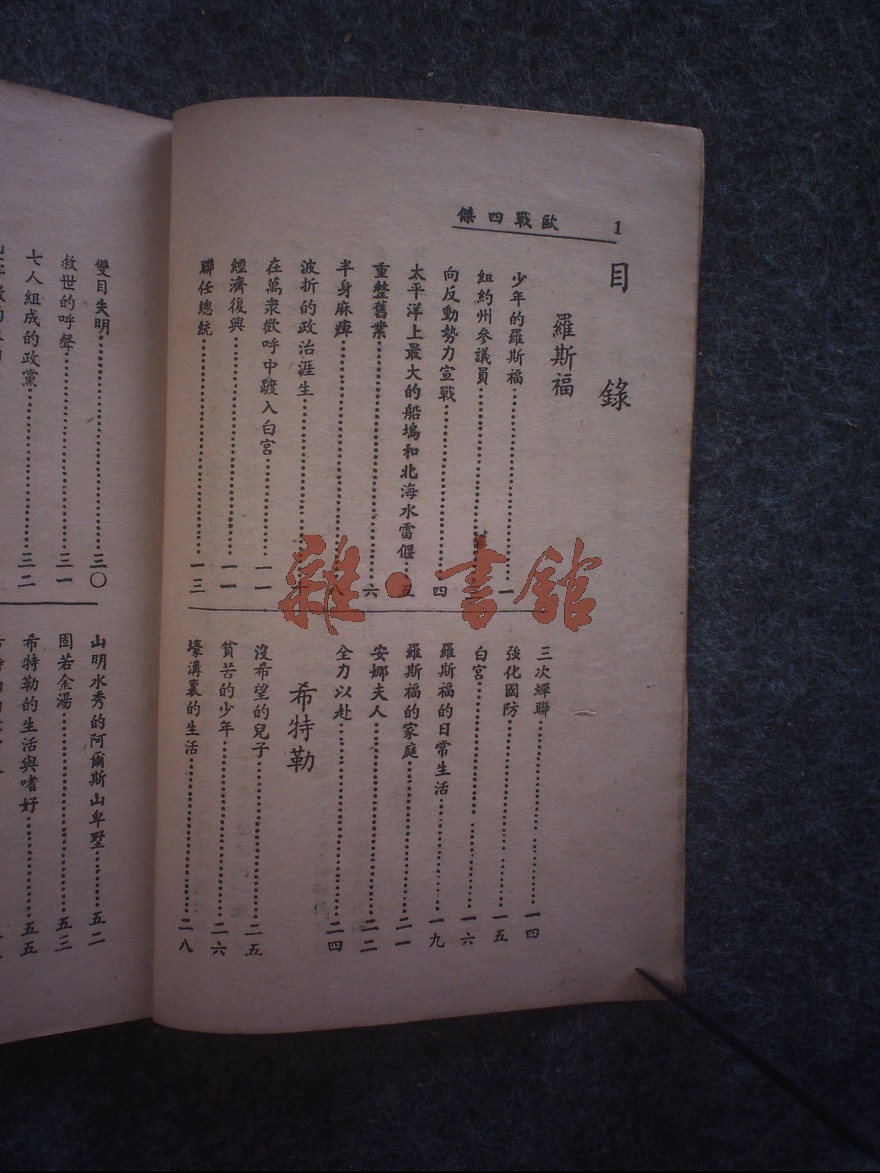 1
歐戰四傑
目錄
羅斯福
少年的羅斯福……一
紐約州參議員……
向反動勢力宣戰……四
太平洋上最大的船塢和北海水雷偃……五
重整舊業……六
半身麻痺……八
波折的政治涯生……
在萬衆歡呼中踱入白宮……一一
經濟復興……一一
聯任總統……一三
三次蟬聯……一四
強化國防……一五
白宮……一六
羅斯福的日常生活……一九
羅斯福的家庭……二一
安娜夫人……二二
全力以赴……二四
希特勒
沒希望的兒子……二五
貧苦的少年……二六
壕溝裏的生活……二八
雙目失明……三〇
救世的呼聲……三一
七人組成的政黨……三二
山明水秀的阿爾斯山卑墅……五二
固若金湯……五三
希特勒的生活與嗜好……五五
雜·書館